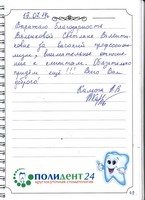 18.02.17г.
Выражаю благодарность
Валенковой Светлане Валенти-
новне за высокий профессиона-
лизм, внимательное отноше-
ние к клиентам. Обязательно
придём ещё!!! Всего Вам
доброго!
ПОЛИДЕНТ 24
круглосуточная стоматология